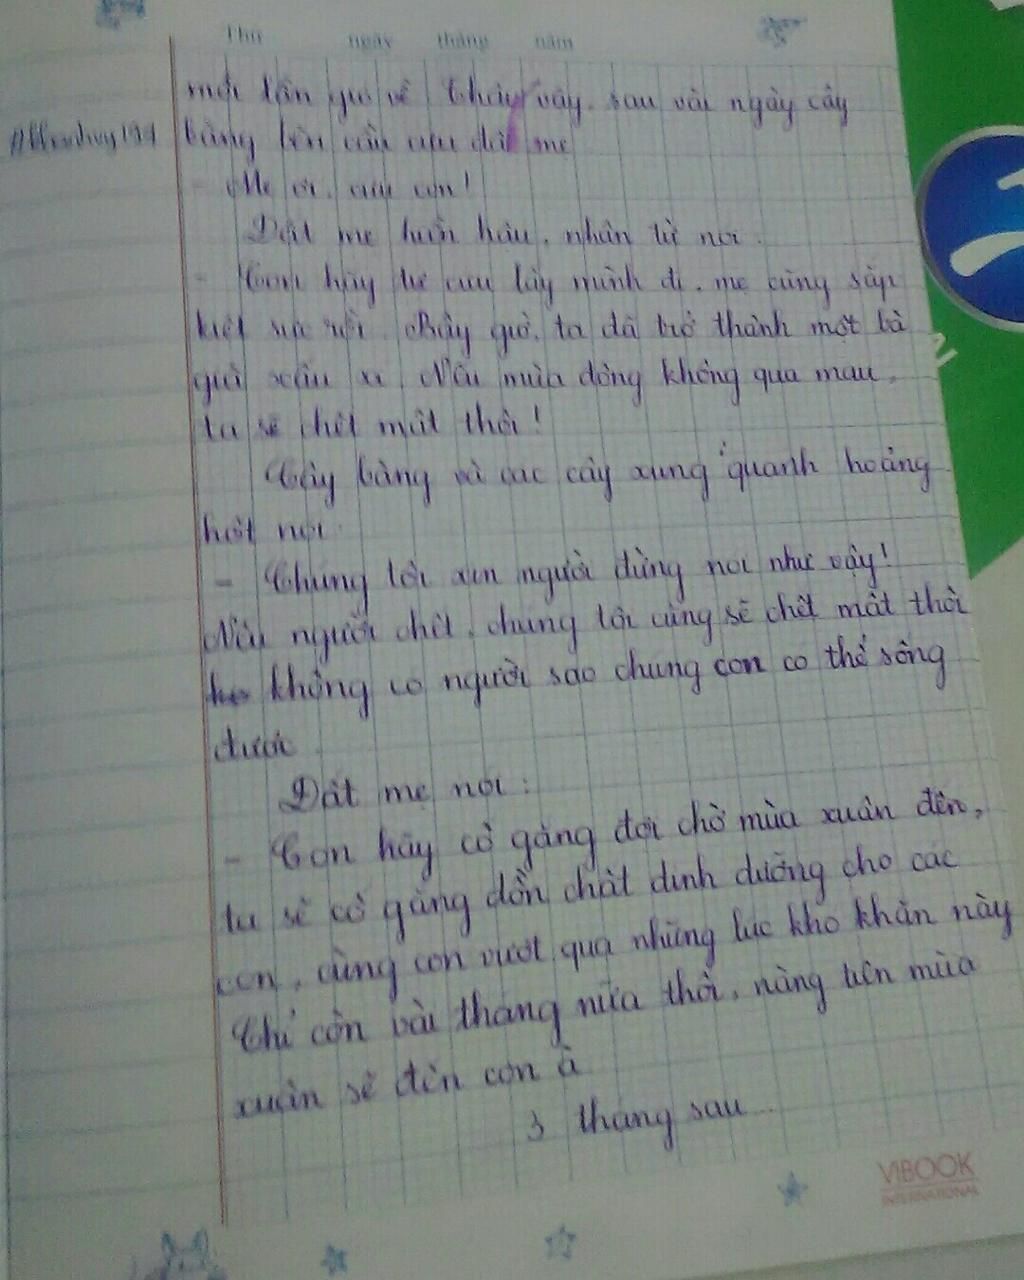 Thứ ngày tháng năm
mỗi lần gió về. Thấy vậy, sau vài ngày cây
bàng lên cầu cứu đất mẹ
- Mẹ ơi, cứu con!
Đất mẹ hiền hậu, nhân từ nói:
- Con hãy tự cứu lấy mình đi, mẹ cũng sắp
kiệt sức rồi. Bây giờ, ta đã trở thành một bà
già xấu xí. Nếu mùa đông không qua mau,
ta sẽ chết mất thôi!
Cây bàng và các cây xung quanh hoảng
hốt nói:
- Chúng tôi xin người đừng nói như vậy!
Nếu người chết, chúng tôi cũng sẽ chết mất thôi
không có người sao chúng con có thể sống
được
Đất mẹ nói:
- Con hãy cố gắng đợi chờ mùa xuân đến,
ta sẽ cố gắng dồn chất dinh dưỡng cho các
con, cùng con vượt qua những lúc khó khăn này
Chỉ còn vài tháng nữa thôi, nàng tiên mùa
xuân sẽ đến con à
3 tháng sau...
VIBOOK
INTERNATIONAL